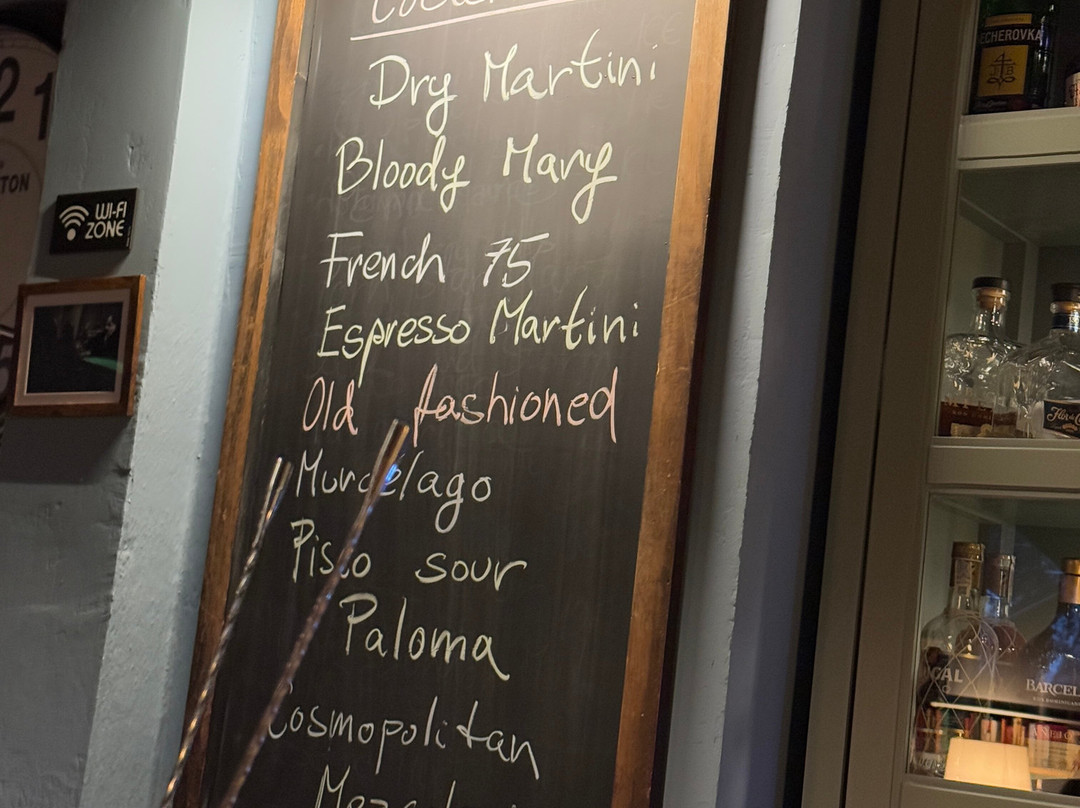 21
TON
WI-FI
ZONE
Dry Martini
Bloody Mary
French 75
Espresso Martini
Old fashioned
Murcelago
Pisco sour
Paloma
Cosmopolitan
BECHEROVKA
JB
BARCEL